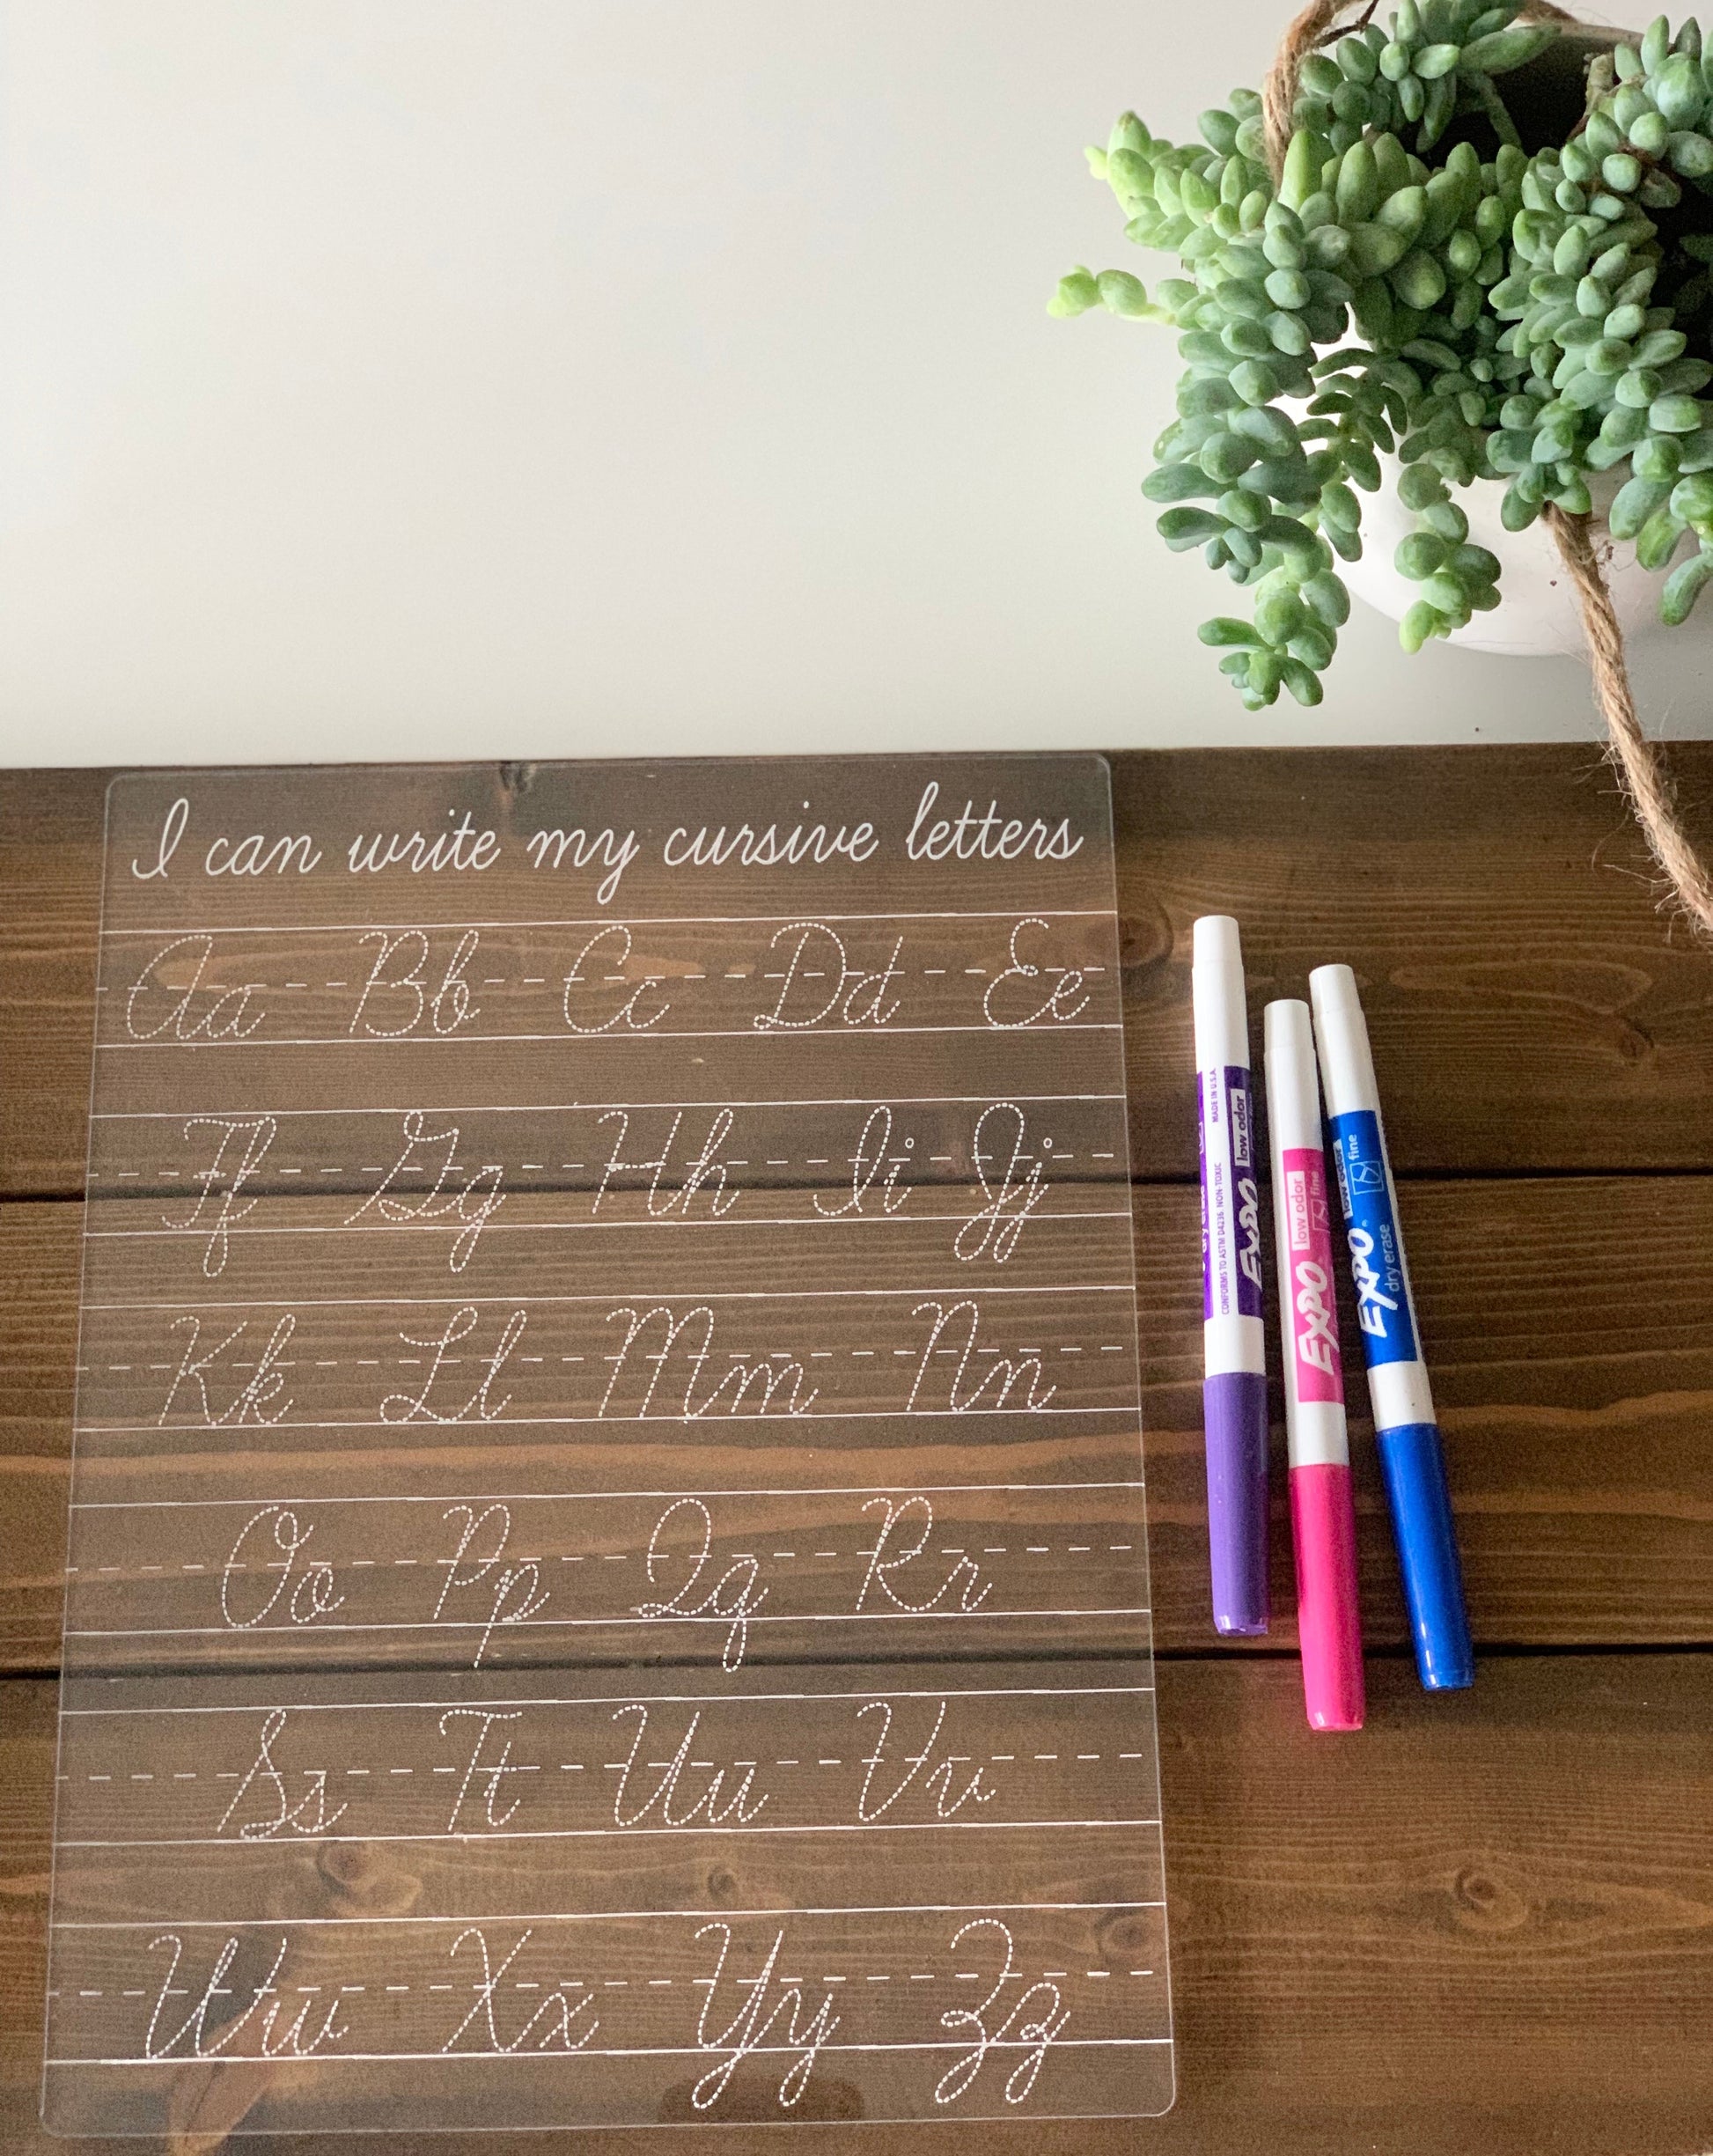 I can write my cursive letters
Aa Bb Cc Dd Ee
Ff Gg Hh Ii Jj
Kk Ll Mm Nn
Oo Pp Qq Rr
Ss Tt Uu Vv
Ww Xx Yy Zz
MADE IN U.S.A.
CONFORMS TO ASTM D4236 NON-TOXIC
EXPO low odor
EXPO low odor
fine
EXPO low odor
dry erase fine